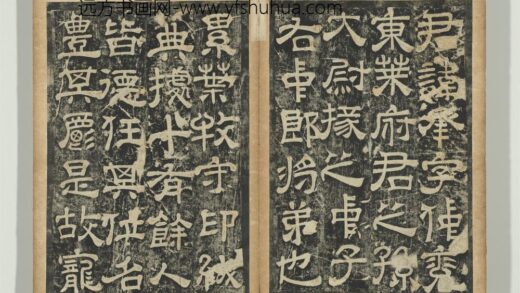 远方书画网-www.yfshuhua.com
君諱承字仲兖
東萊府君之孫
大尉掾之中子
右中郎將弟也
累葉牧守印紱
典據十有餘人
皆德任其位名
豐其爵是故寵